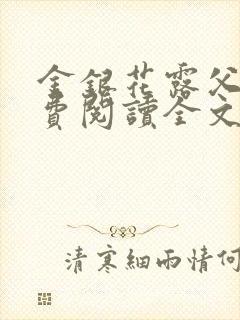 金銀花露父
費閱讀全文
清寒細雨情何